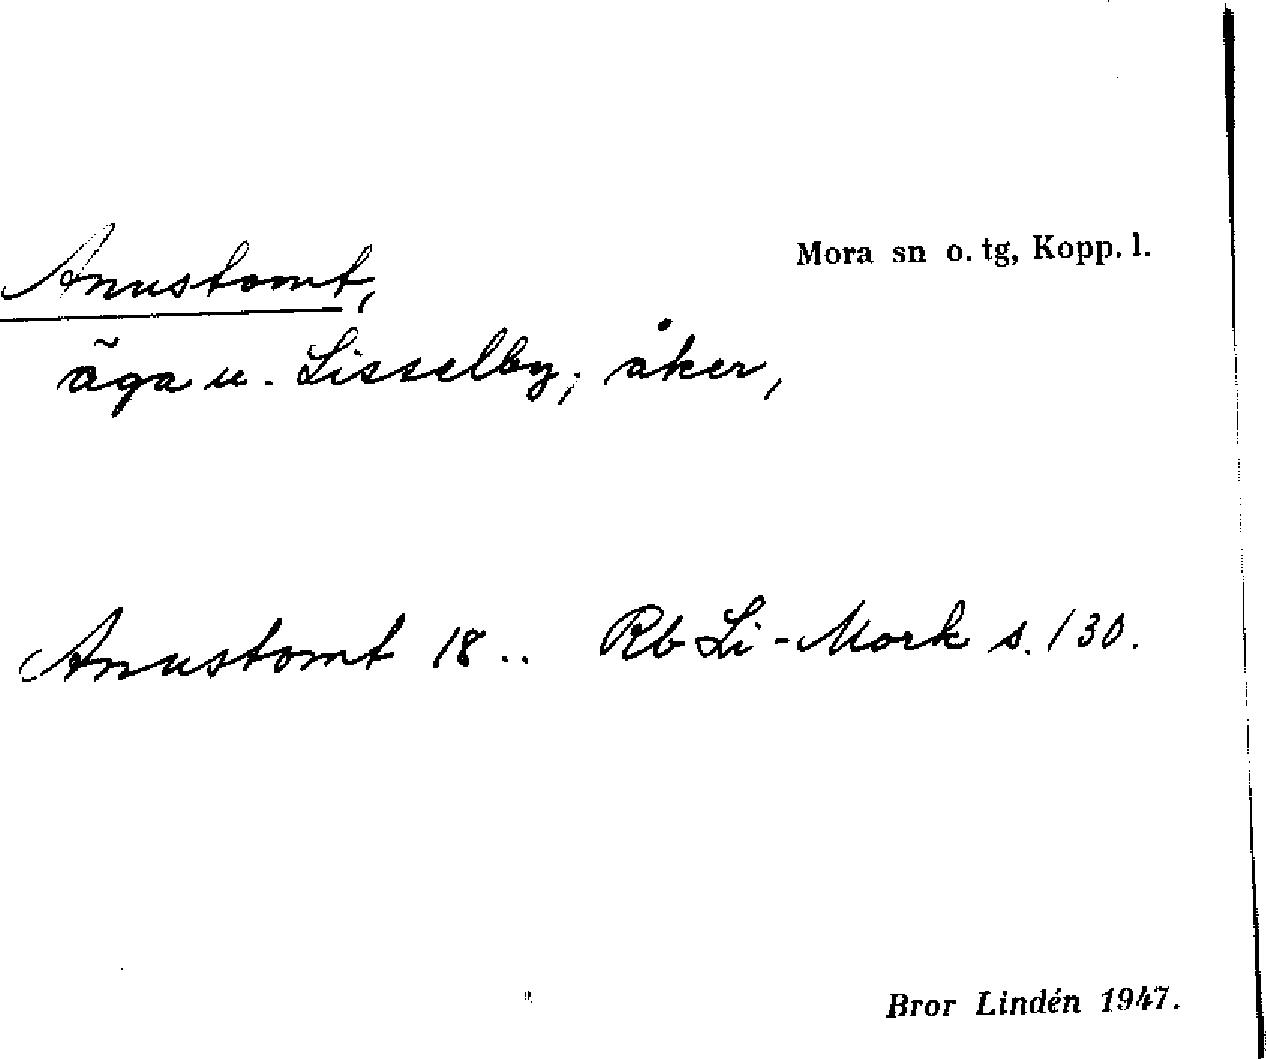 Annstomt,
Mora sn o. tg, Kopp. l.
äga u. Lisselby; åker,
Annstomt 18.. Rb Li-Mork s. 130.
Bror Lindén 1947.